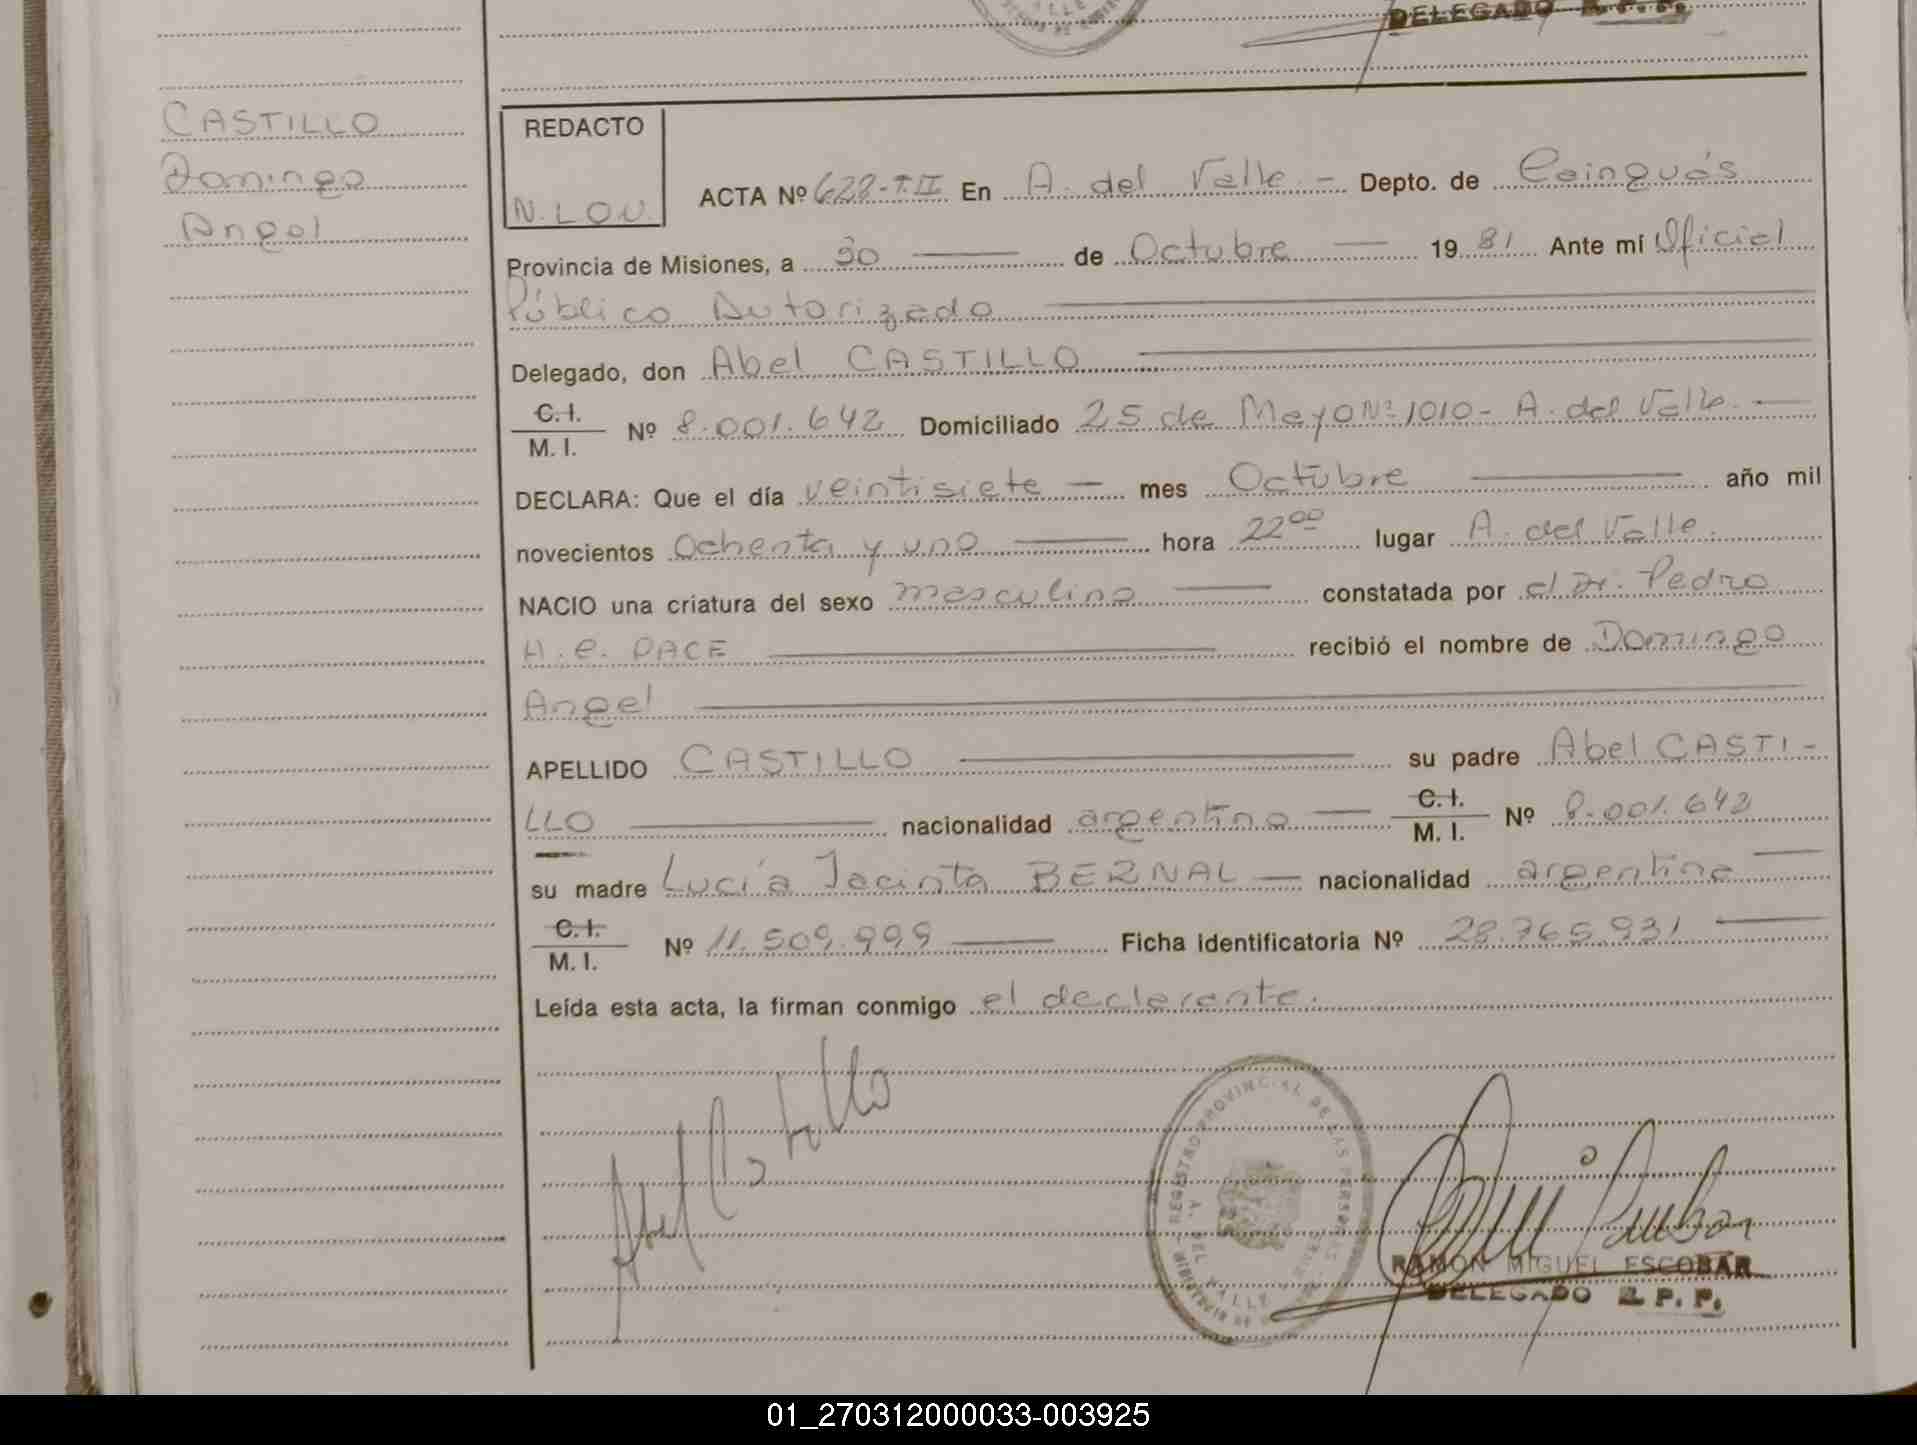 DELEGADO R.P.P.
CASTILLO
Domingo
Angel
REDACTO
N. LOV.
ACTA Nº 628-T.II En A. del Valle - Depto. de Cainguás
Provincia de Misiones, a 30 de Octubre 19 81 Ante mí Oficial
Público Autorizado
Delegado, don Abel CASTILLO
C.I. / M.I. Nº 8.001.642 Domiciliado 25 de Mayo Nº 1010- A. del Valle.
DECLARA: Que el día veintisiete mes Octubre año mil
novecientos Ochenta y uno hora 22⁰⁰ lugar A. del Valle.
NACIO una criatura del sexo masculino constatada por el Dr. Pedro
H. C. PACE recibió el nombre de Domingo
Angel
APELLIDO CASTILLO su padre Abel CASTI-
LLO nacionalidad argentina C.I. / M.I. Nº 8.001.642
su madre Lucía Jacinta BERNAL nacionalidad argentina
C.I. / M.I. Nº 11.509.999 Ficha identificatoria Nº 28.765.931
Leída esta acta, la firman conmigo el declarante.
Abel Castillo
REGISTRO PROVINCIAL DE LAS PERSONAS
A. DEL VALLE
RAMON MIGUEL ESCOBAR
DELEGADO R.P.P.
01_270312000033-003925